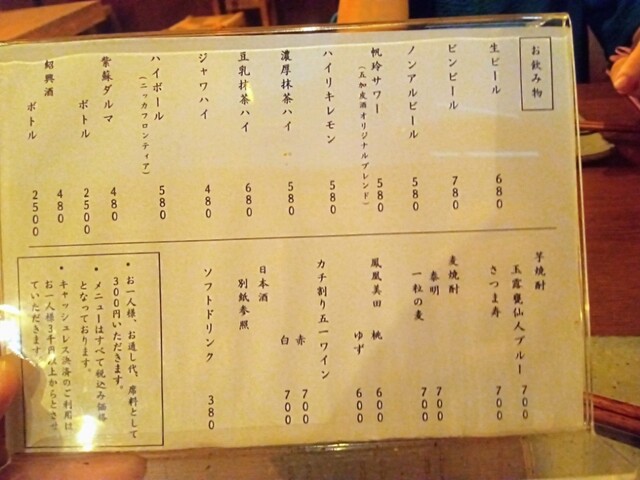 お飲み物
生ビール 680
ビンビール 780
ノンアルビール 580
帆玲サワー 580
(五加皮酒オリジナルブレンド)
ハイリキレモン 580
濃厚抹茶ハイ 580
豆乳抹茶ハイ 680
ジャワハイ 480
ハイボール 580
(ニッカフロンティア)
紫蘇ダルマ 480
ボトル 2500
紹興酒 480
ボトル 2500
芋焼酎
玉露甕仙人ブルー 700
さつま寿 700
麦焼酎
泰明 700
一粒の麦 700
鳳凰美田 桃 600
ゆず 600
カチ割り五一ワイン
赤 700
白 700
日本酒
別紙参照
ソフトドリンク 380
• お一人様、お通し代、席料として
300円いただきます。
• メニューはすべて税込み価格
となっております。
• キャッシュレス決済のご利用は
お一人様3千円以上からとさせ
ていただきます。